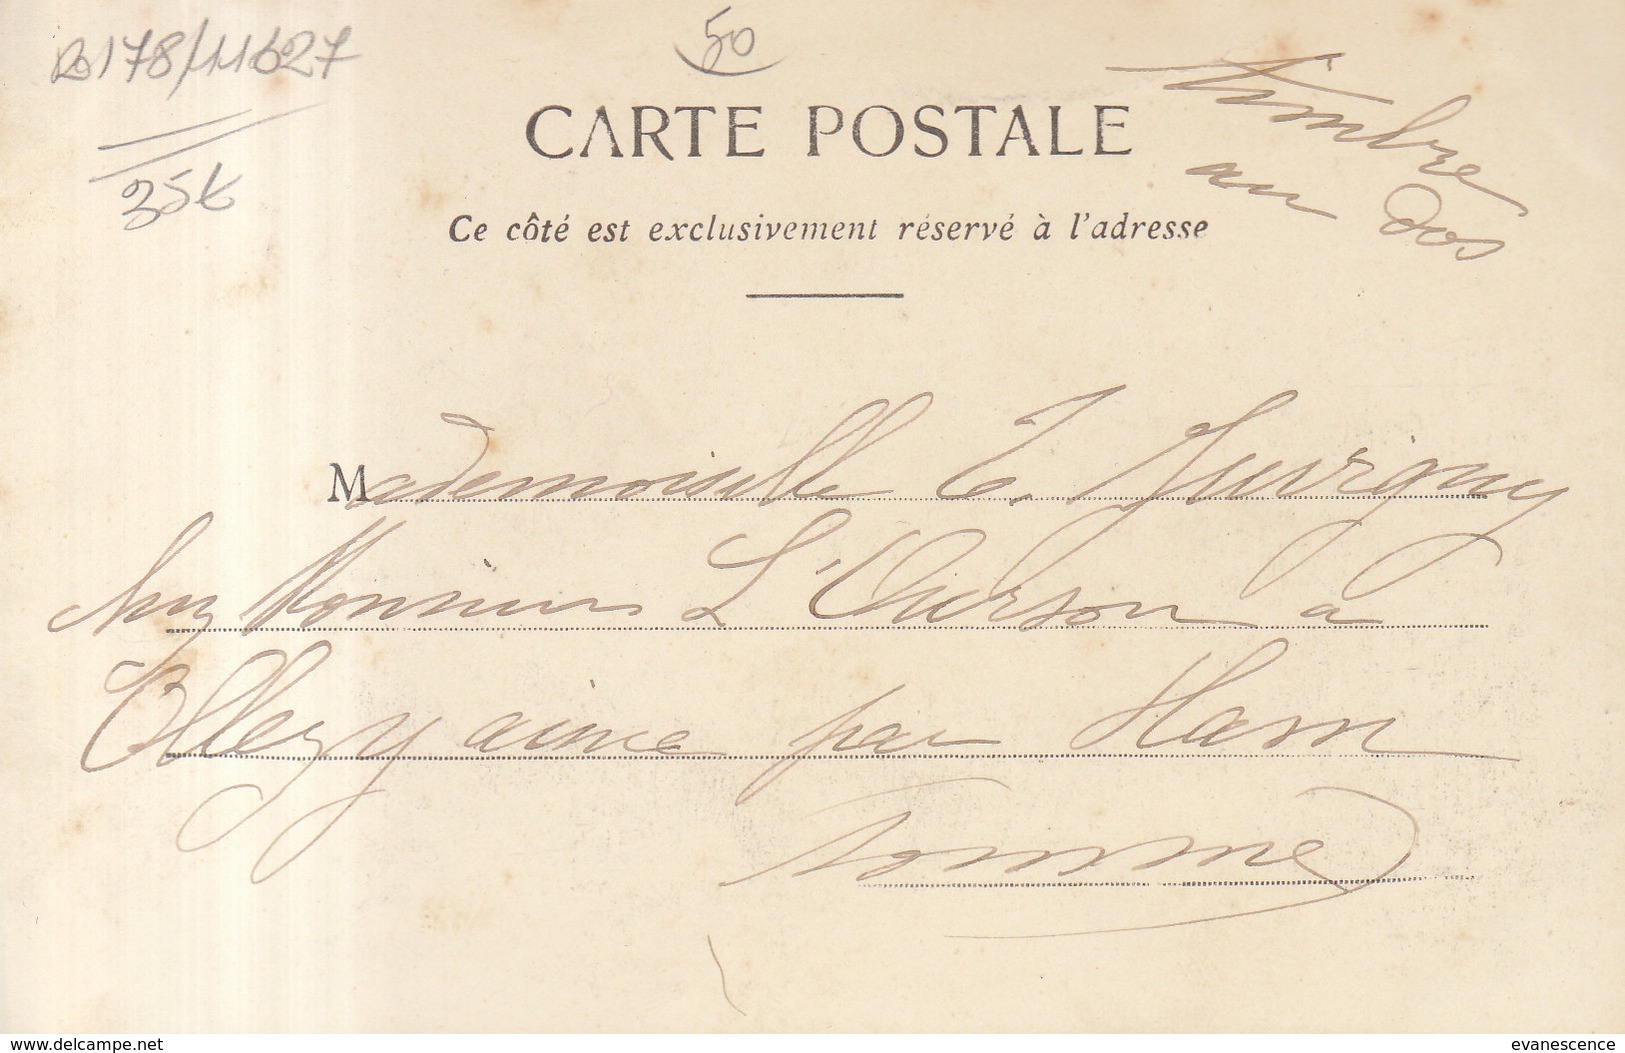 B178/11627
35t
50
CARTE POSTALE
Timbre
au dos
Ce côté est exclusivement réservé à l'adresse
Mademoiselle E. Juvigny
chez Monsieur L'Ourson à
Ollezy aisne par Ham
Somme
www.delcampe.net
evanescence